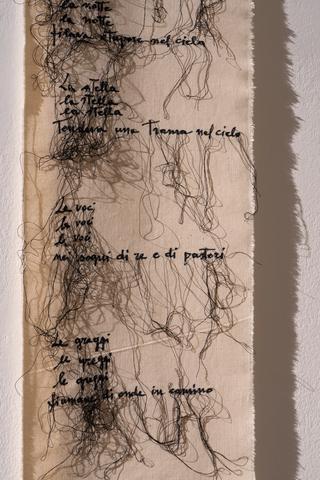 la notte
la notte
filava stupore nel cielo
La stella
la stella
la stella
Tendeva una Trama nel cielo
Le voci
le voci
le voci
nei sogni di re e di pastori
Le greggi
le greggi
le greggi
fiumane di onde in camino